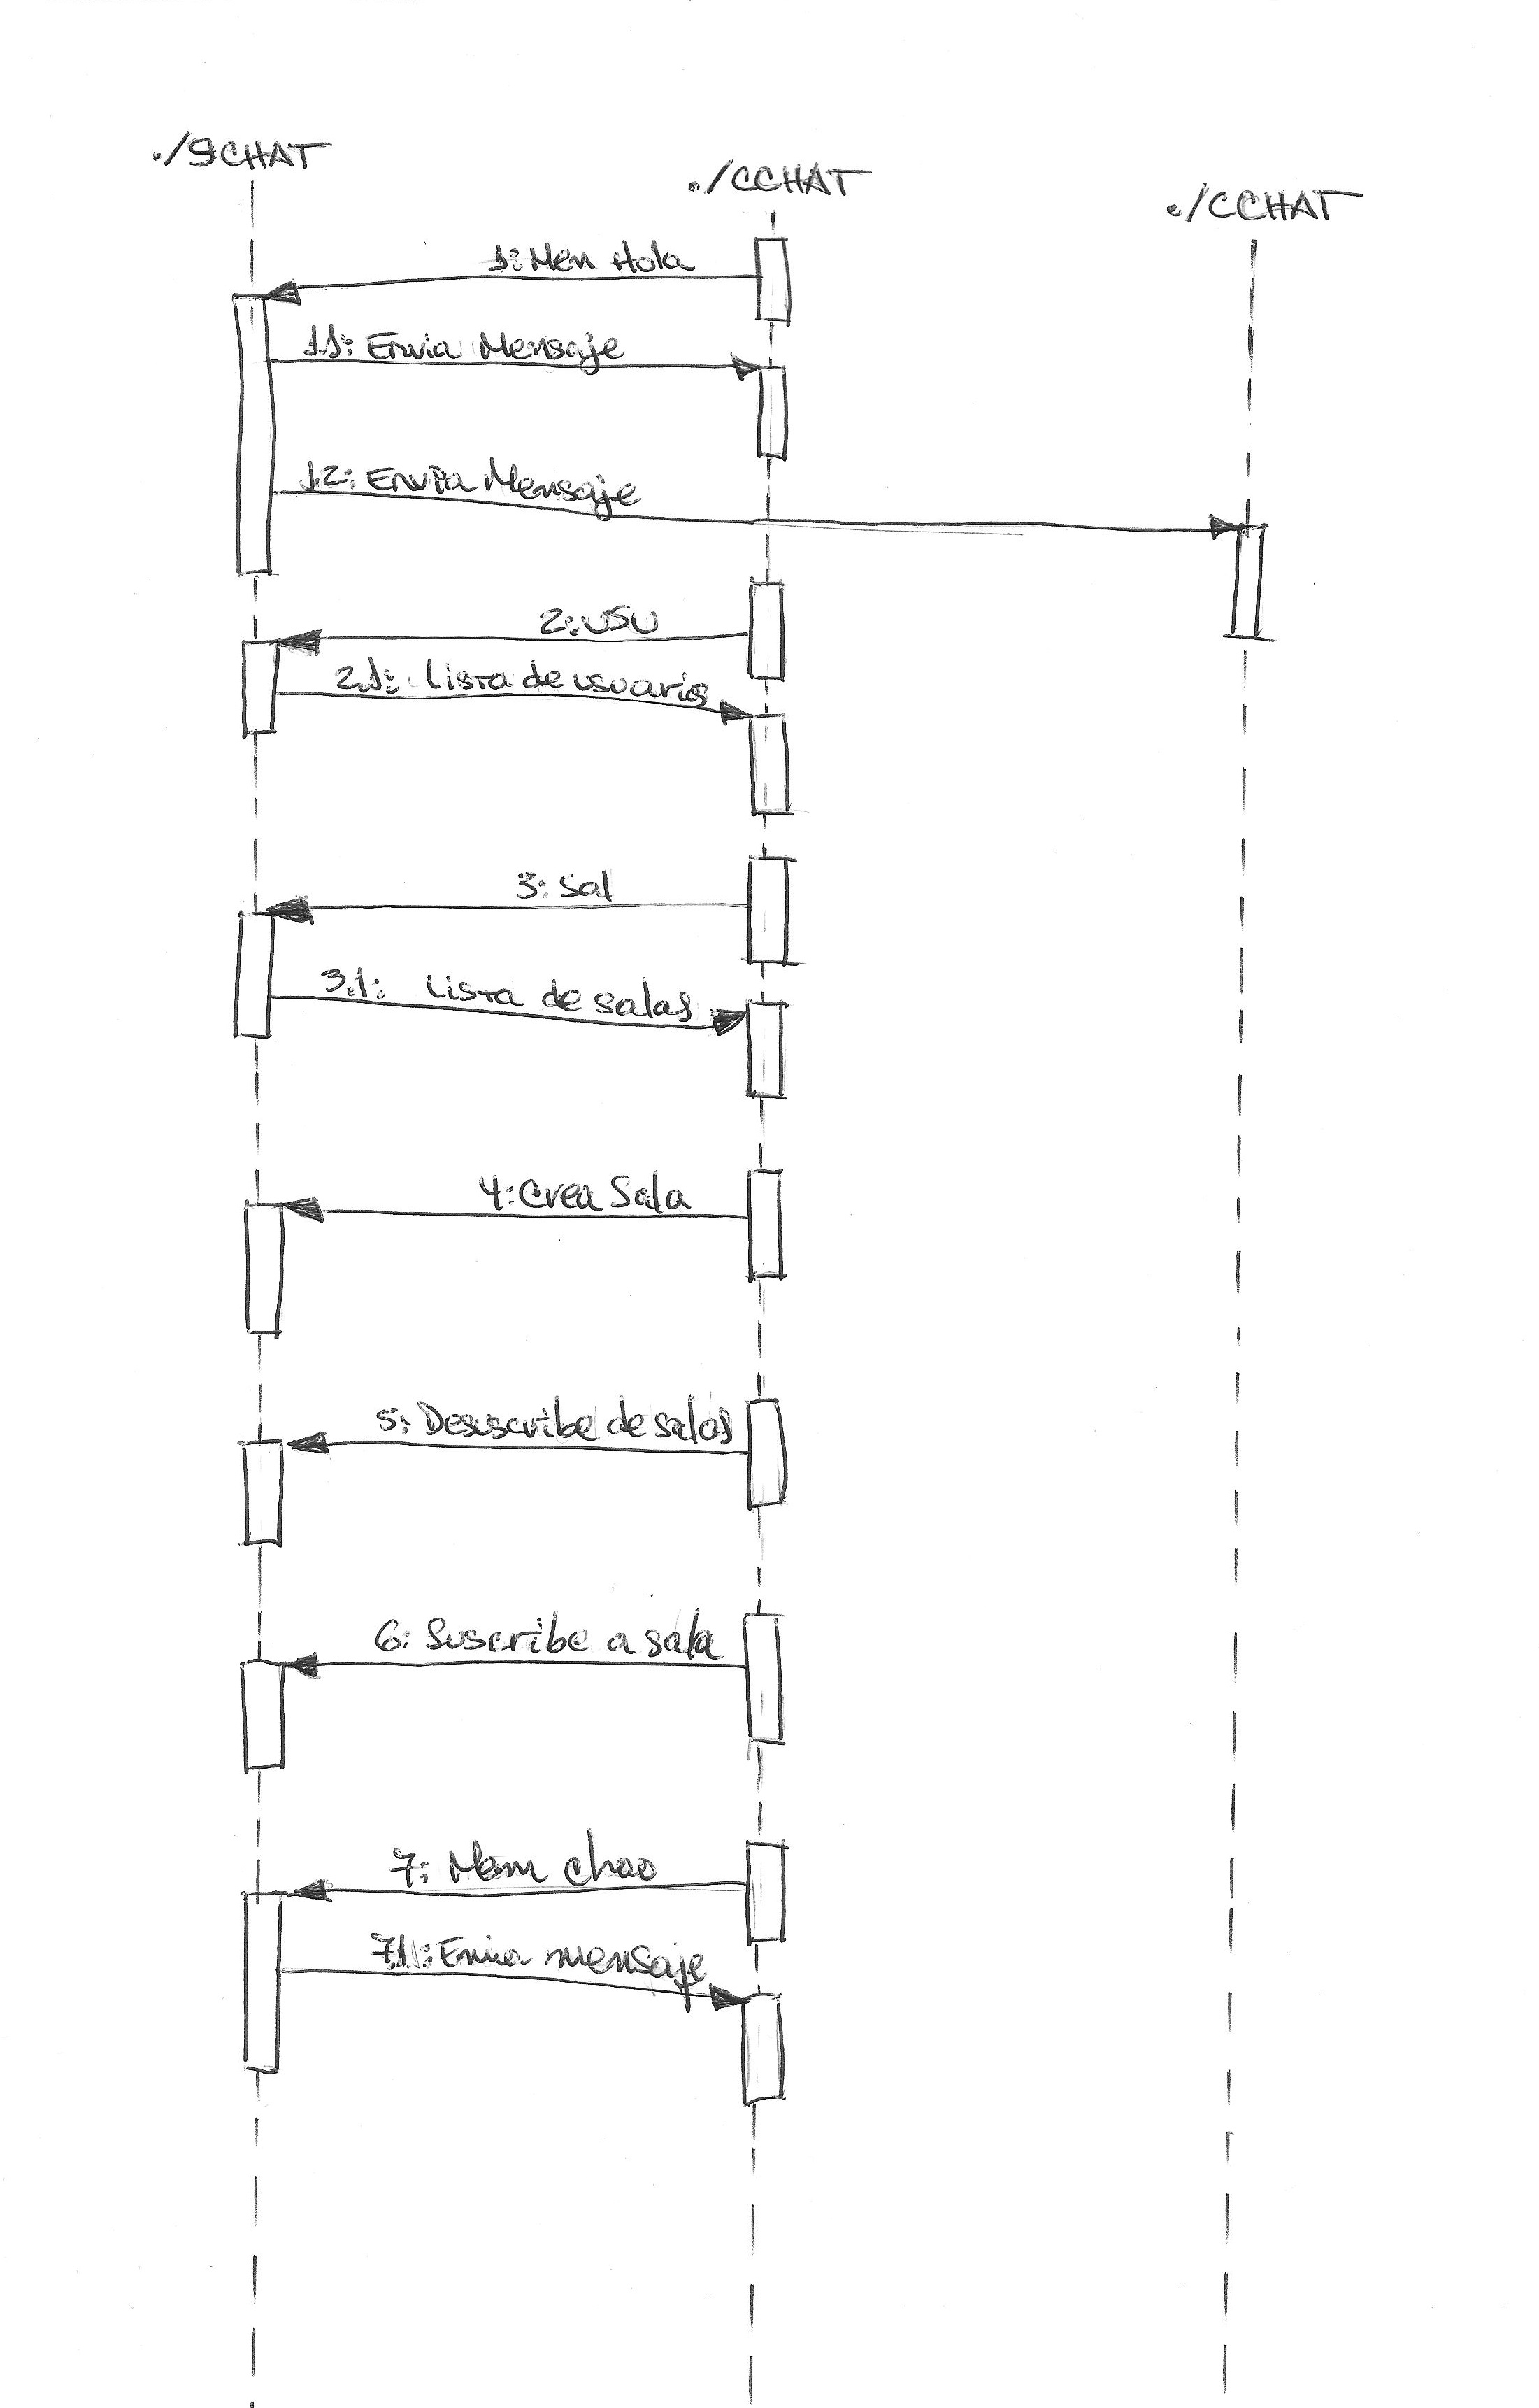 ./SCHAT
./CCHAT
./CCHAT
1: Men Hola
1.1: Envia Mensaje
1.2: Envia Mensaje
2: USU
2.1: Lista de usuarios
3: Sal
3.1: Lista de salas
4: Crea Sala
5: Desuscribe de salas
6: Suscribe a sala
7: Mem chao
7.1: Envia mensaje